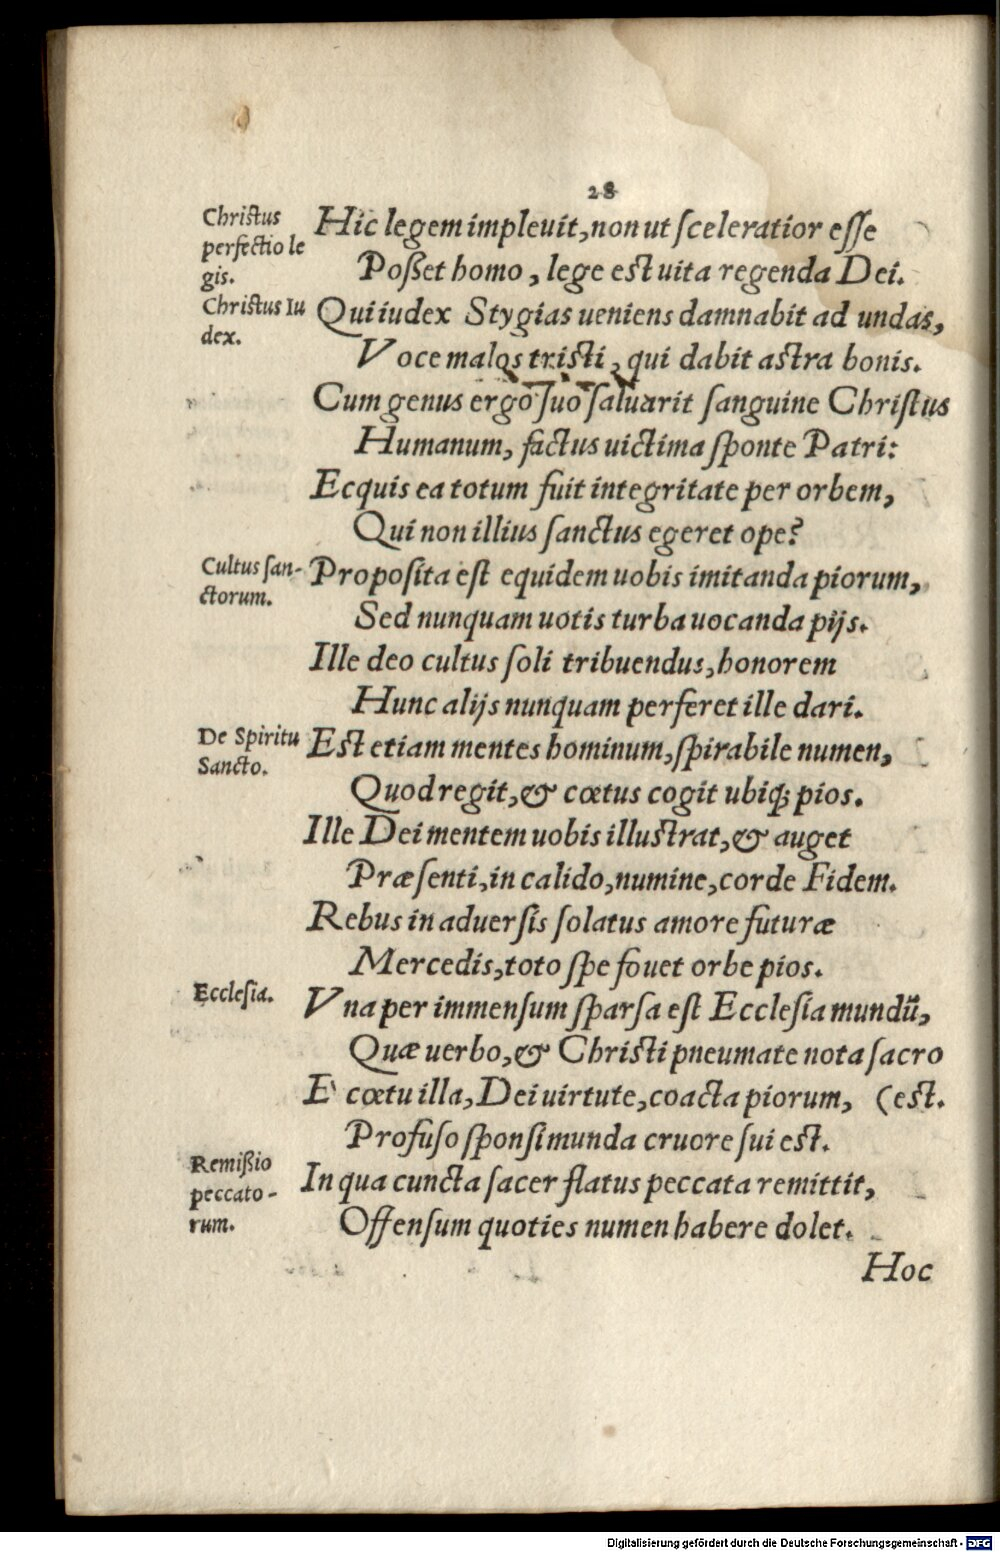 28
Christus
perfectio le
gis.
Hic legem impleuit, non ut sceleratior esse
Poßet homo, lege est uita regenda Dei.
Christus Iu
dex.
Qui iudex Stygias ueniens damnabit ad undas,
Voce malos tristi, qui dabit astra bonis.
Cum genus ergo suo saluarit sanguine Christus
Humanum, factus uictima sponte Patri:
Ecquis ea totum fuit integritate per orbem,
Qui non illius sanctus egeret ope?
Cultus san-
ctorum.
Proposita est equidem uobis imitanda piorum,
Sed nunquam uotis turba uocanda pijs.
Ille deo cultus soli tribuendus, honorem
Hunc alijs nunquam perferet ille dari.
De Spiritu
Sancto.
Est etiam mentes hominum, spirabile numen,
Quod regit, & cœtus cogit ubiq; pios.
Ille Dei mentem uobis illustrat, & auget
Præsenti, in calido, numine, corde Fidem.
Rebus in aduersis solatus amore futuræ
Mercedis, toto spe fouet orbe pios.
Ecclesia.
Vna per immensum sparsa est Ecclesia mundũ,
Quæ uerbo, & Christi pneumate nota sacro
E' cœtu illa, Dei uirtute, coacta piorum, (est.
Profuso sponsi munda cruore sui est.
Remißio
peccato-
rum.
In qua cuncta sacer flatus peccata remittit,
Offensum quoties numen habere dolet.
Hoc
Digitalisierung gefördert durch die Deutsche Forschungsgemeinschaft - DFG